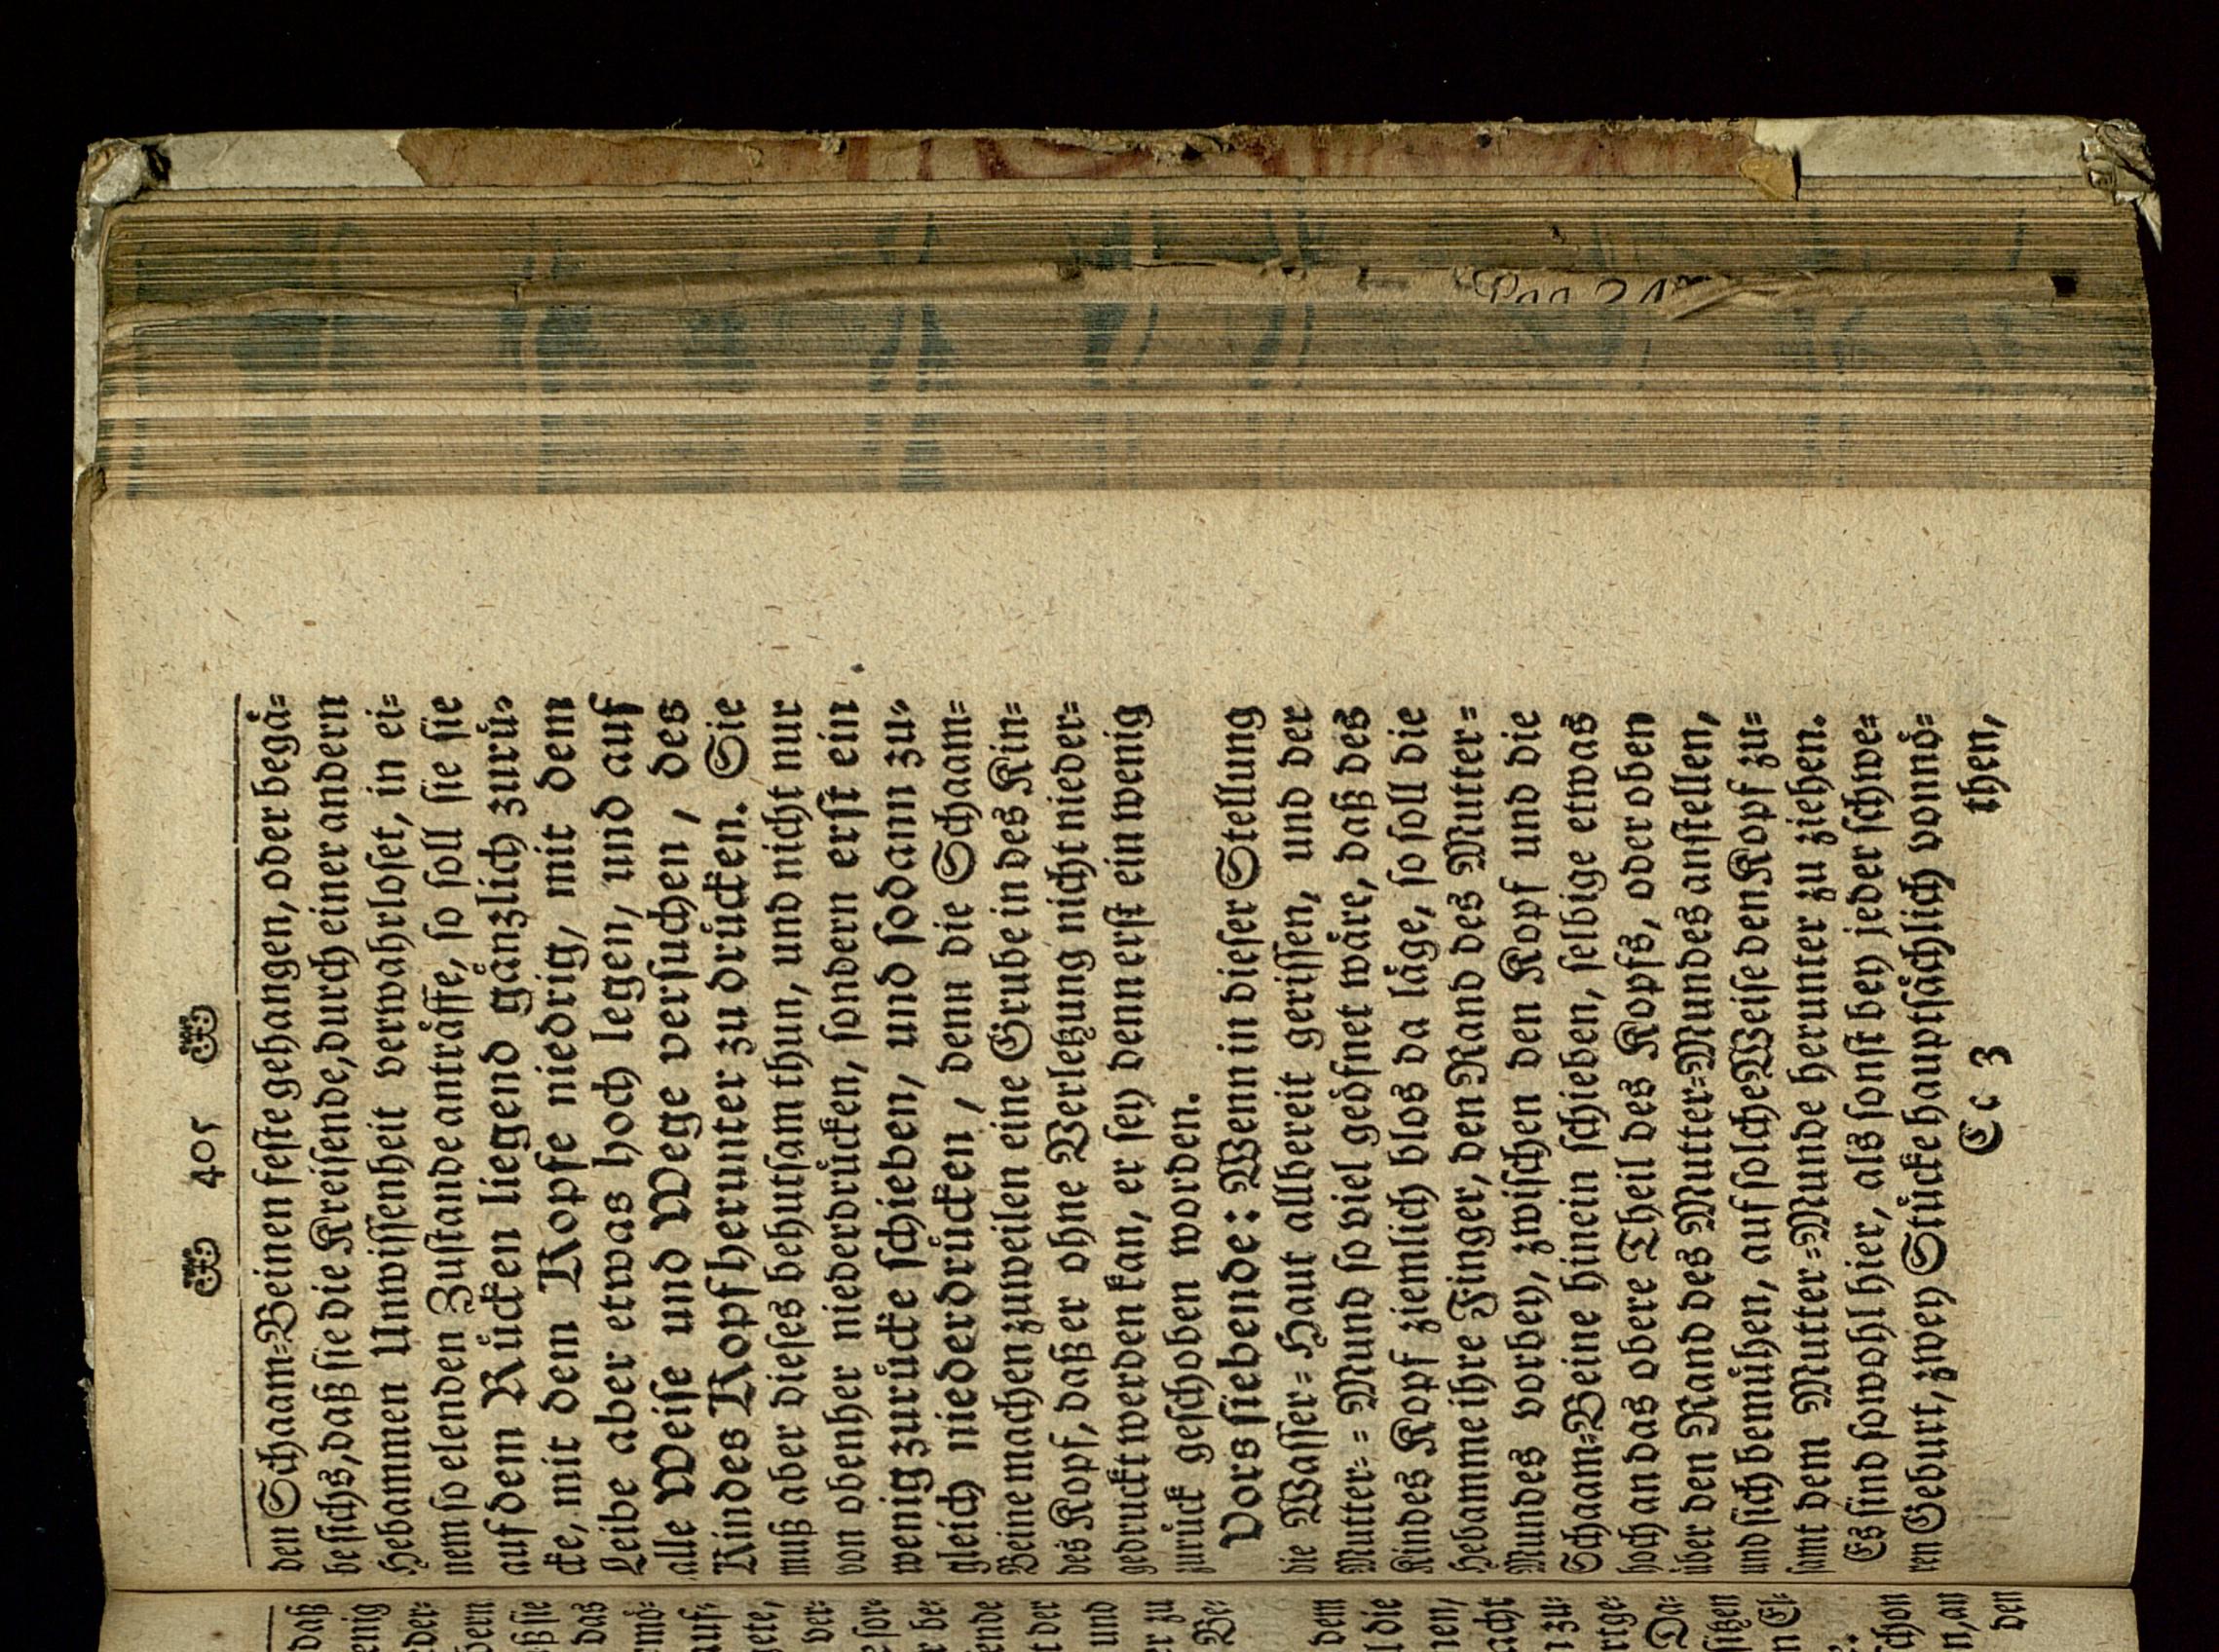 405
den Schaam=Beinen feste gehangen, oder begä=
be sichs, daß sie die Kreisende, durch einer andern
Hebammen Unwissenheit verwahrloset, in ei=
nem so elenden Zustande anträffe, so soll sie sie
auf dem Rücken liegend gänzlich zurü=
cke, mit dem Kopfe niedrig, mit dem
Leibe aber etwas hoch legen, und auf
alle Weise und Wege versuchen, des
Kindes Kopf herunter zu drücken. Sie
muß aber dieses behutsam thun, und nicht nur
von obenher niederdrücken, sondern erst ein
wenig zurücke schieben, und sodann zu=
gleich niederdrücken, denn die Schaam=
Beine machen zuweilen eine Grube in des Kin=
des Kopf, daß er ohne Verletzung nicht nieder=
gedruckt werden kan, er sey denn erst ein wenig
zurück geschoben worden.
Vors siebende: Wenn in dieser Stellung
die Wasser=Haut allbereit gerissen, und der
Mutter=Mund so viel geöfnet wäre, daß des
Kindes Kopf ziemlich blos da läge, so soll die
Hebamme ihre Finger, den Rand des Mutter=
Mundes vorbey, zwischen den Kopf und die
Schaam=Beine hinein schieben, selbige etwas
hoch an das obere Theil des Kopfs, oder oben
über den Rand des Mutter=Mundes anstellen,
und sich bemühen, auf solche Weise den Kopf zu=
samt dem Mutter=Munde herunter zu ziehen.
Es sind sowohl hier, als sonst bey jeder schwe=
ren Geburt, zwey Stücke hauptsächlich vonnö=
Cc 3 then,
daß
enig
der=
bern
das
auf=
gete,
ver=
e sor=
r be=
ende
t der
und
er zu
Be=
dem
l die
nen,
acht
n zu=
Da=
n Ei=
schon
n, an
den